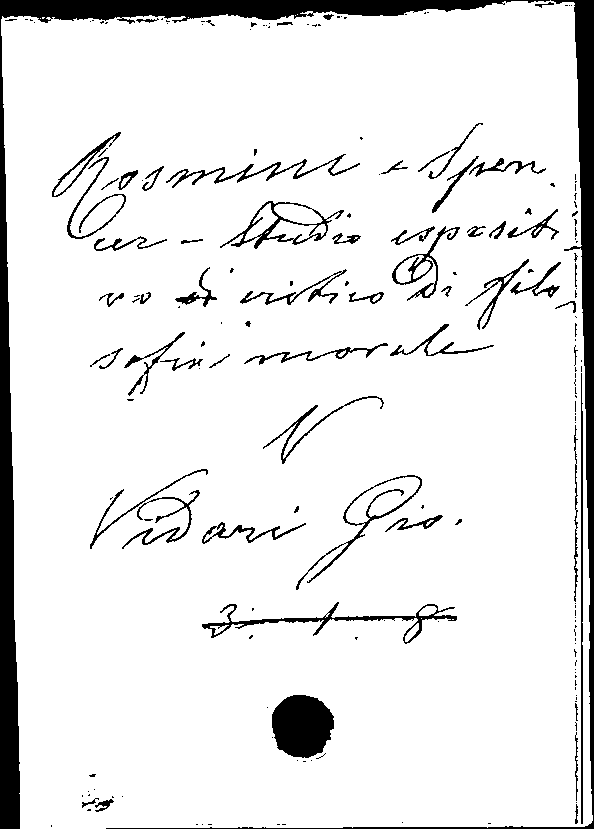 Rosmini e Spen
cer - Studio espositi
vo e critico di filo-
sofia morale
V
Vidari Gio.
3. 1. 8